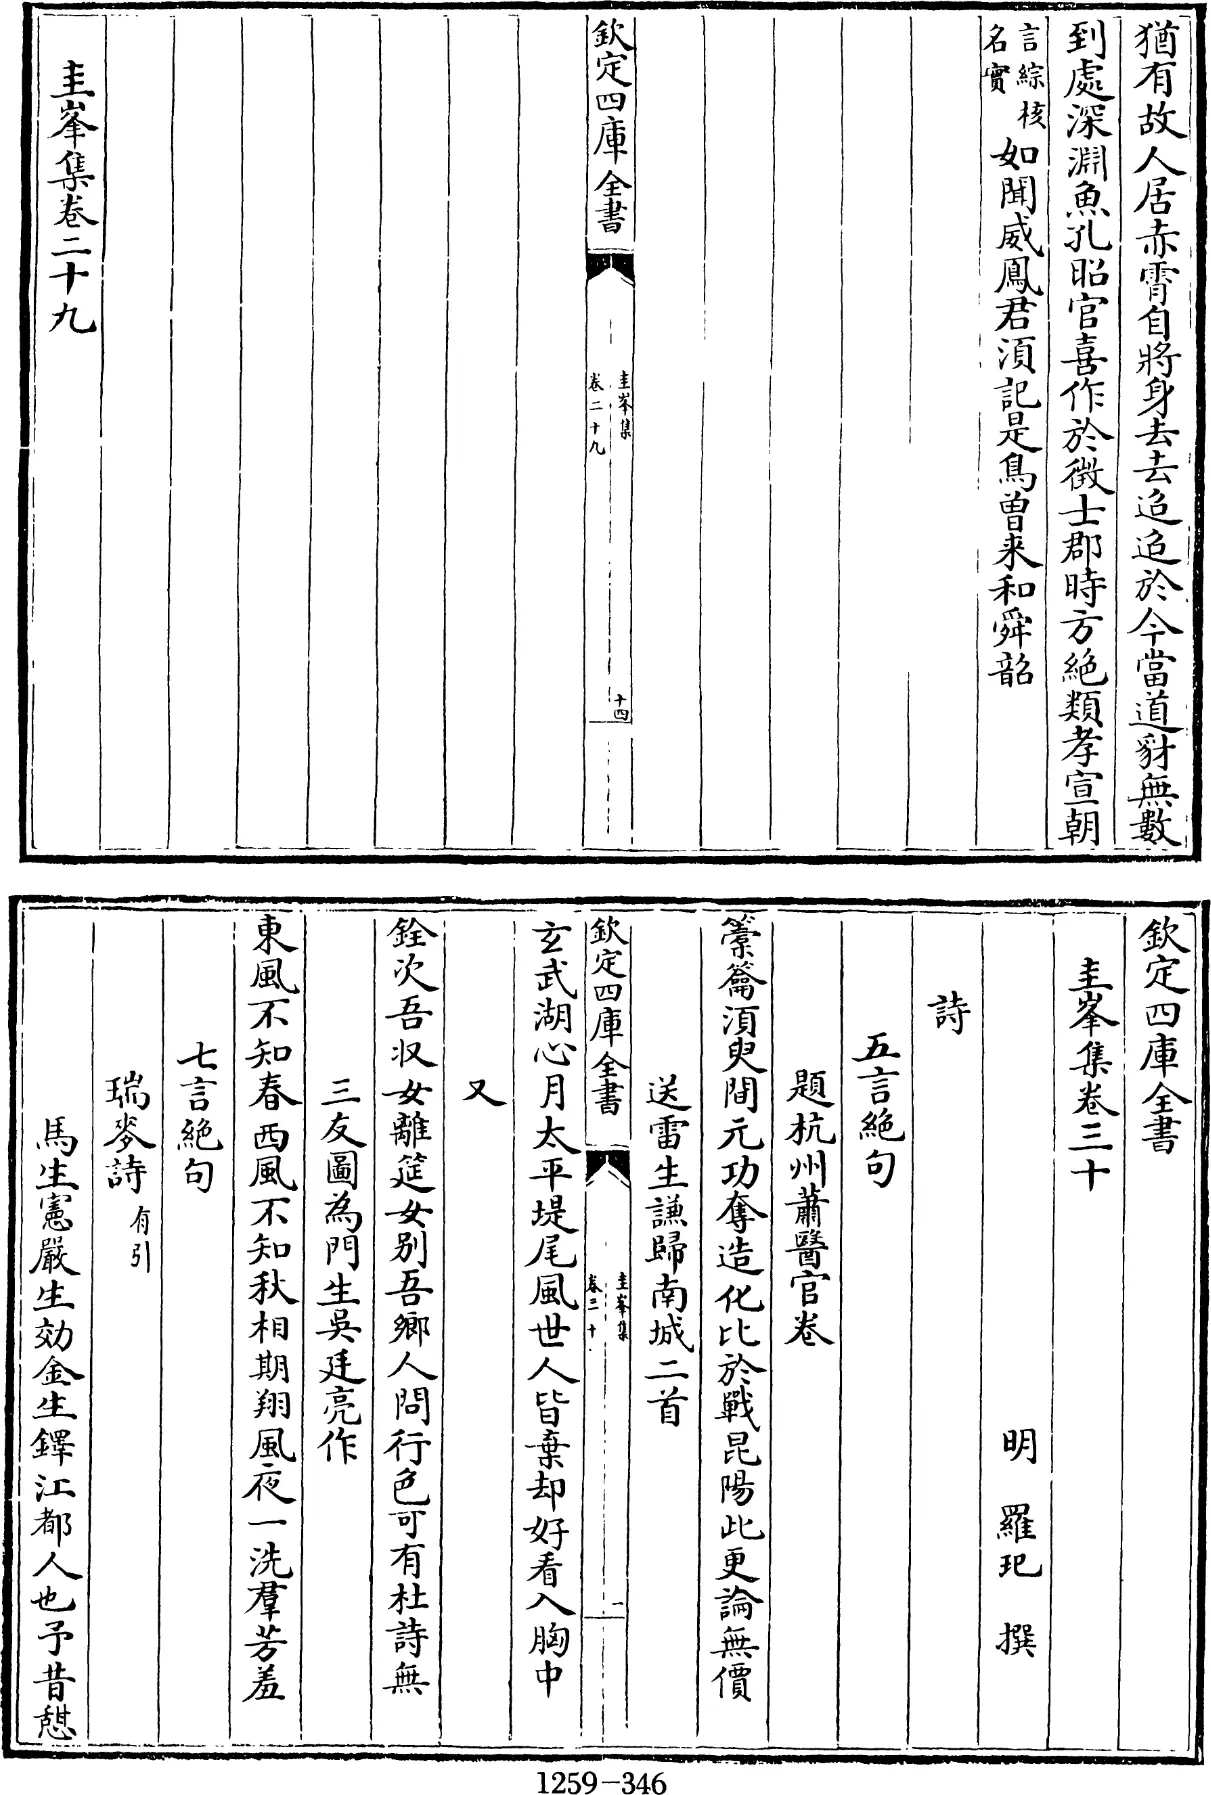 猶有故人居赤霄自將身去去迢迢於今當道豺無數
到處深淵魚孔昭官喜作於徴士郡時方絶類孝宣朝
言綜核名實如聞威鳳君須記是鳥曽来和舜韶
欽定四庫全書
圭峯集
卷二十九
十四
圭峯集卷二十九
欽定四庫全書
圭峯集卷三十
明 羅玘 撰
詩
五言絶句
題杭州蕭醫官卷
橐籥須臾間元功奪造化比於戰昆陽此更論無價
送雷生謙歸南城二首
欽定四庫全書
圭峯集
卷三十
一
玄武湖心月太平堤尾風世人皆棄却好看入胸中
又
銓次吾収女離筵女别吾鄉人問行色可有杜詩無
三友圖為門生吳廷亮作
東風不知春西風不知秋相期翔風夜一洗羣芳羞
七言絶句
瑞麥詩有引
馬生憲嚴生効金生鐸江都人也予昔憇
1259-346